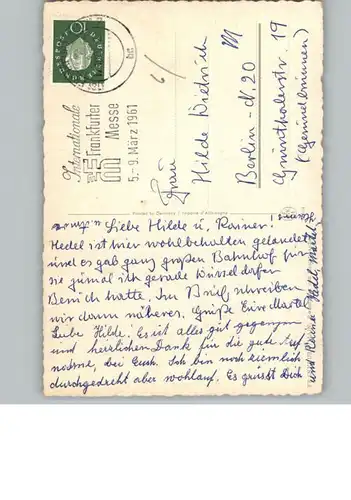 DEUTSCHE BUNDESPOST
10
Internationale
Frankfurter
Messe
5.-9. März 1961
Frau
Hilde Dietrich
Berlin - N. 20
Grünthalerstr. 19
(Gesundbrunnen)
Liebe Hilde u. Rainer!
Hedel ist hier wohlbehalten gelandet
und es gab ganz großen Bahnhof für
sie zumal ich gerade Düsseldorfer
Besuch hatte. Im Brief schreiben
wir dann näheres. Grüße Eure Martel
Liebe Hilde! Es ist alles gut gegangen
und herzlichen Dank für die gute Auf
nahme, bei Euch. Ich bin noch ziemlich
durchgedreht aber wohlauf. Es grüßt Dich
und Rainer Hedel, Martel